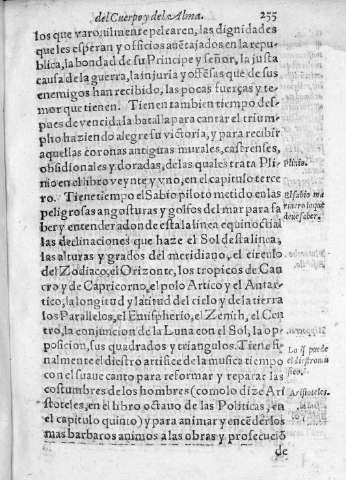 del Cuerpo y del Alma. 255
los que varonilmente pelearen, las dignidades
que les esperan y officios auẽtajados en la repu-
blica, la bondad de su Principe y señor, la justa
causa de la guerra, la injuria y offẽsas que de sus
enemigos han recibido, las pocas fuerças y te-
mor que tienen. Tienen tambien tiempo des-
pues de vencida la batalla para cantar el trium-
pho haziendo alegre su victoria, y para recibir
aquellas coronas antiguas murales, castrenses,
obsidionales y doradas, de las quales trata Pli-
nio en el libro veynte y vno, en el capitulo terce
ro. Tiene tiempo el Sabio piloto metido en las
peligrosas angosturas y golfos del mar para sa
ber y entender adonde esta la linea equinoctial
las declinaciones que haze el Sol desta linea,
las alturas y grados del meridiano, el circulo
del Zodiaco, el Orizonte, los tropicos de Can
cro y de Capricorno, el polo Artico y el Antar-
tico, la longitud y latitud del cielo y de la tierra
los Parallelos, el Emispherio, el Zenith, el Cen
tro, la conjuncion de la Luna con el Sol, la op-
posicion, sus quadrados y triangulos. Tiene fi-
nalmente el diestro artifice de la musica tiempo
con el suaue canto para reformar y reparar las
costumbres de los hombres (como lo dize Ari
stoteles, en el libro octauo de las Politicas, en
el capitulo quinto) y para animar y encẽder los
mas barbaros animos a las obras y prosecuciõ
de
Plinio.
El sabio ma
rinero lo que
deue saber.
Lo q̃ puede
el diestro mu
sico.
Aristoteles.